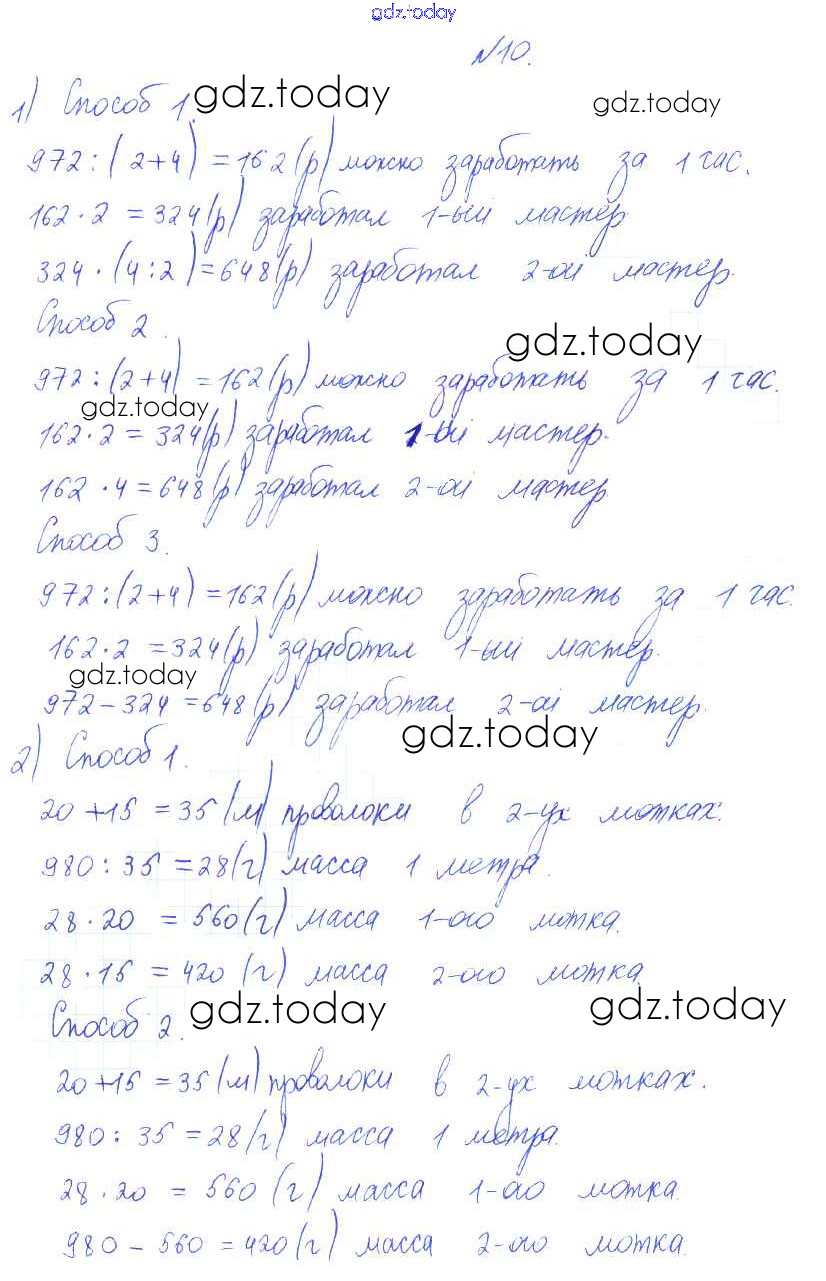 gdz.today
№10.
1) Способ 1. gdz.today gdz.today
972:(2+4) = 162 (р) можно заработать за 1 час.
162·2 = 324 (р) заработал 1-ый мастер.
324·(4:2) = 648 (р) заработал 2-ой мастер.
Способ 2.
gdz.today
972:(2+4) = 162 (р) можно заработать за 1 час.
gdz.today
162·2 = 324 (р) заработал 1-ый мастер.
162·4 = 648 (р) заработал 2-ой мастер
Способ 3.
972:(2+4) = 162 (р) можно заработать за 1 час.
162·2 = 324 (р) заработал 1-ый мастер.
gdz.today
972-324 = 648 (р) заработал 2-ой мастер.
gdz.today
2) Способ 1.
20+15 = 35 (м) проволоки в 2-ух мотках.
980:35 = 28 (г) масса 1 метра.
28·20 = 560 (г) масса 1-ого мотка.
28·15 = 420 (г) масса 2-ого мотка.
Способ 2. gdz.today gdz.today
20+15 = 35 (м) проволоки в 2-ух мотках.
980:35 = 28 (г) масса 1 метра.
28·20 = 560 (г) масса 1-ого мотка.
980-560 = 420 (г) масса 2-ого мотка.